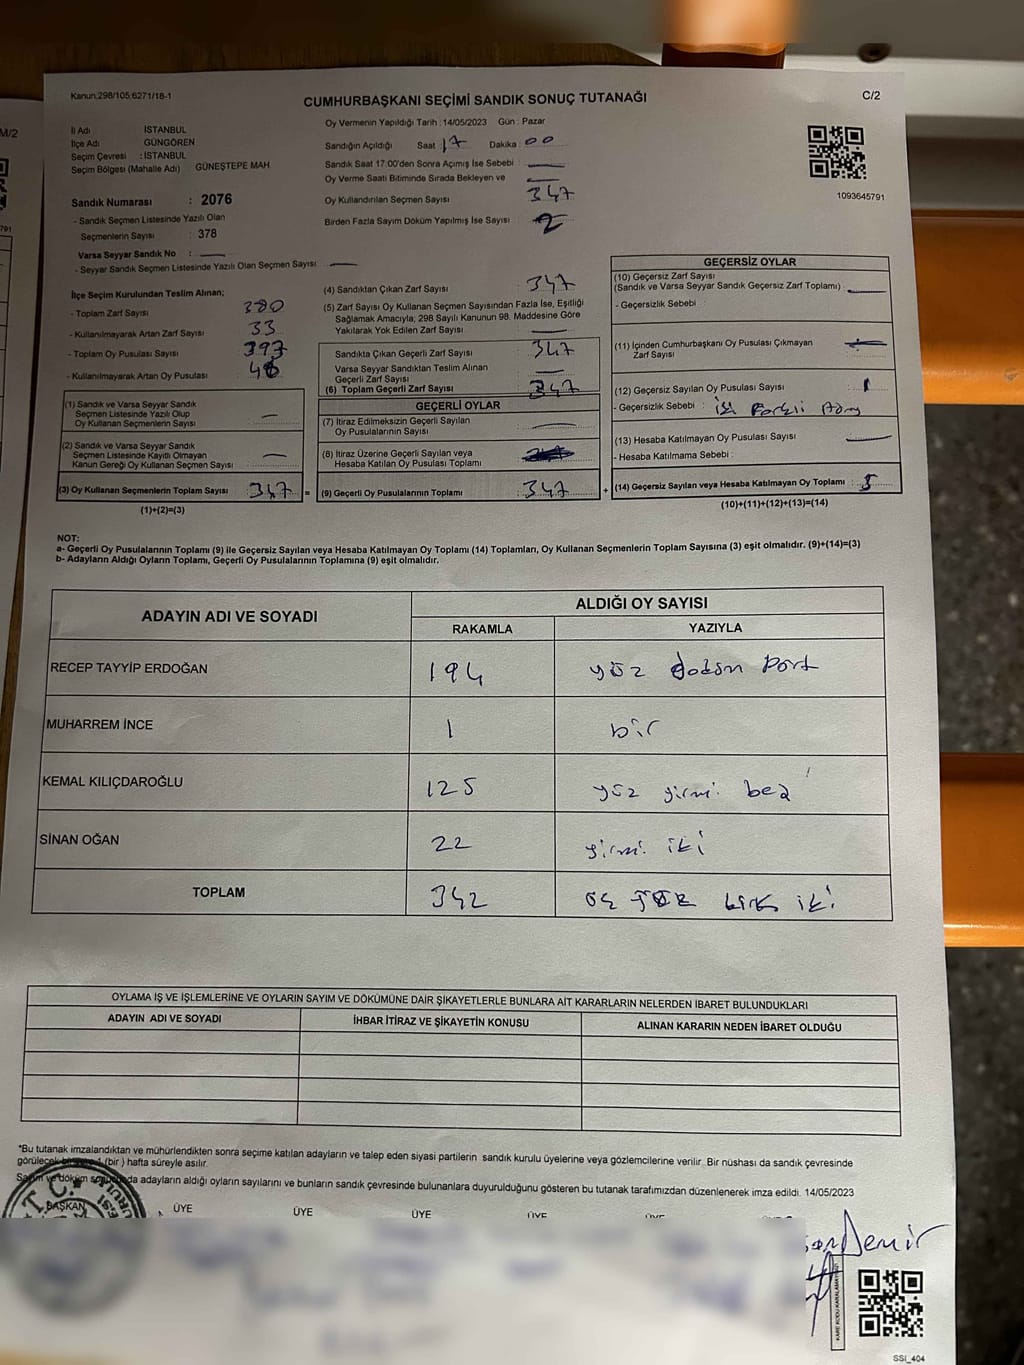 Kanun:298/105;6271/18-1
CUMHURBAŞKANI SEÇİMİ SANDIK SONUÇ TUTANAĞI
C/2
M/2
İl Adı İSTANBUL
İlçe Adı GÜNGÖREN
Seçim Çevresi : İSTANBUL
Seçim Bölgesi (Mahalle Adı) GÜNEŞTEPE MAH
Sandık Numarası : 2076
- Sandık Seçmen Listesinde Yazılı Olan
Seçmenlerin Sayısı : 378
Varsa Seyyar Sandık No :
- Seyyar Sandık Seçmen Listesinde Yazılı Olan Seçmen Sayısı
Oy Vermenin Yapıldığı Tarih : 14/05/2023 Gün : Pazar
Sandığın Açıldığı Saat 17 Dakika : 00
Sandık Saat 17:00'den Sonra Açımış İse Sebebi
Oy Verme Saati Bitiminde Sırada Bekleyen ve
Oy Kullandırılan Seçmen Sayısı 347
Birden Fazla Sayım Döküm Yapılmış İse Sayısı 2
1093645791
791
İlçe Seçim Kurulundan Teslim Alınan;
- Toplam Zarf Sayısı 380
- Kullanılmayarak Artan Zarf Sayısı 33
- Toplam Oy Pusulası Sayısı 397
- Kullanılmayarak Artan Oy Pusulası
(1) Sandık ve Varsa Seyyar Sandık
Seçmen Listesinde Yazılı Olup
Oy Kullanan Seçmenlerin Sayısı
(2) Sandık ve Varsa Seyyar Sandık
Seçmen Listesinde Kayıtlı Olmayan
Kanun Gereği Oy Kullanan Seçmen Sayısı
(3) Oy Kullanan Seçmenlerin Toplam Sayısı 347
(1)+(2)=(3)
=
(4) Sandıktan Çıkan Zarf Sayısı 347
(5) Zarf Sayısı Oy Kullanan Seçmen Sayısından Fazla İse, Eşitliği
Sağlamak Amacıyla; 298 Sayılı Kanunun 98. Maddesine Göre
Yakılarak Yok Edilen Zarf Sayısı
Sandıkta Çıkan Geçerli Zarf Sayısı 347
Varsa Seyyar Sandıktan Teslim Alınan
Geçerli Zarf Sayısı
(6) Toplam Geçerli Zarf Sayısı 347
GEÇERLİ OYLAR
(7) İtiraz Edilmeksizin Geçerli Sayılan
Oy Pusulalarının Sayısı
(8) İtiraz Üzerine Geçerli Sayılan veya
Hesaba Katılan Oy Pusulası Toplamı
(9) Geçerli Oy Pusulalarının Toplamı : 347
+
GEÇERSİZ OYLAR
(10) Geçersiz Zarf Sayısı
(Sandık ve Varsa Seyyar Sandık Geçersiz Zarf Toplamı) :
- Geçersizlik Sebebi :
(11) İçinden Cumhurbaşkanı Oy Pusulası Çıkmayan
Zarf Sayısı
(12) Geçersiz Sayılan Oy Pusulası Sayısı
- Geçersizlik Sebebi :
(13) Hesaba Katılmayan Oy Pusulası Sayısı
- Hesaba Katılmama Sebebi :
(14) Geçersiz Sayılan veya Hesaba Katılmayan Oy Toplamı : 5
(10)+(11)+(12)+(13)=(14)
NOT:
a- Geçerli Oy Pusulalarının Toplamı (9) ile Geçersiz Sayılan veya Hesaba Katılmayan Oy Toplamı (14) Toplamları, Oy Kullanan Seçmenlerin Toplam Sayısına (3) eşit olmalıdır. (9)+(14)=(3)
b- Adayların Aldığı Oyların Toplamı, Geçerli Oy Pusulalarının Toplamına (9) eşit olmalıdır.
ADAYIN ADI VE SOYADI ALDIĞI OY SAYISI
RAKAMLA YAZIYLA
RECEP TAYYİP ERDOĞAN 194 yüz doksan
MUHARREM İNCE 1 bir
KEMAL KILIÇDAROĞLU 125 yüz yirmi beş
SİNAN OĞAN 22 yirmi iki
TOPLAM 342 üç yüz kırk iki
OYLAMA İŞ VE İŞLEMLERİNE VE OYLARIN SAYIM VE DÖKÜMÜNE DAİR ŞİKAYETLERLE BUNLARA AİT KARARLARIN NELERDEN İBARET BULUNDUKLARI
ADAYIN ADI VE SOYADI İHBAR İTİRAZ VE ŞİKAYETİN KONUSU ALINAN KARARIN NEDEN İBARET OLDUĞU
*Bu tutanak imzalandıktan ve mühürlendikten sonra seçime katılan adayların ve talep eden siyasi partilerin sandık kurulu üyelerine veya gözlemcilerine verilir. Bir nüshası da sandık çevresinde
görülecek bir yere 1 (bir ) hafta süreyle asılır.
Sayım ve döküm sonucunda adayların aldığı oyların sayılarını ve bunların sandık çevresinde bulunanlara duyurulduğunu gösteren bu tutanak tarafımızdan düzenlenerek imza edildi. 14/05/2023
BAŞKAN ÜYE ÜYE ÜYE ÜYE ÜYE
T.C.
Demir
SSI_404